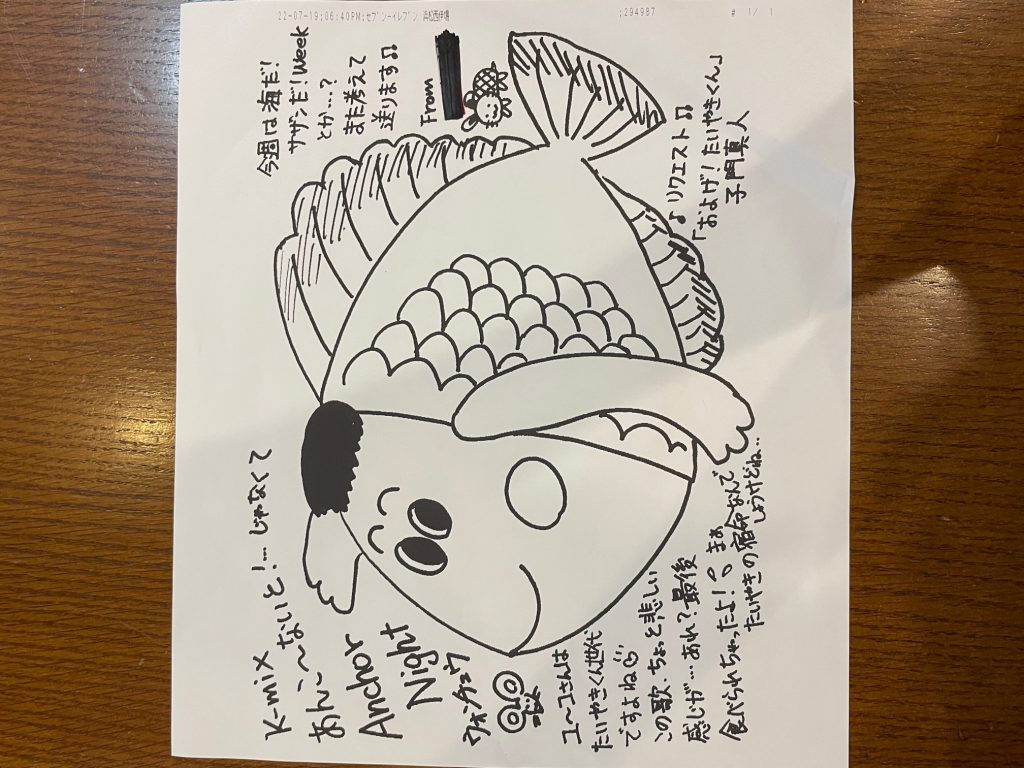 22-07-19;06:40PM;セブン-イレブン 浜松西伊場 ;294987 # 1/ 1
K-mix
あんこ〜ないと!…じゃなくて
Anchor
Night
ウォーチュウ
今週は海だ!
サザンだ!Week
とか…?
また考えて
送ります♫
From
♪リクエスト♫
「およげ!たいやきくん」
子門真人
ユーコさんは
たいやきくん世代
ですよね
この歌、ちょっと悲しい
感じが…あれ?最後
食べられちゃったよ! まぁ
たいやきの宿命なんで
しょうけどね..